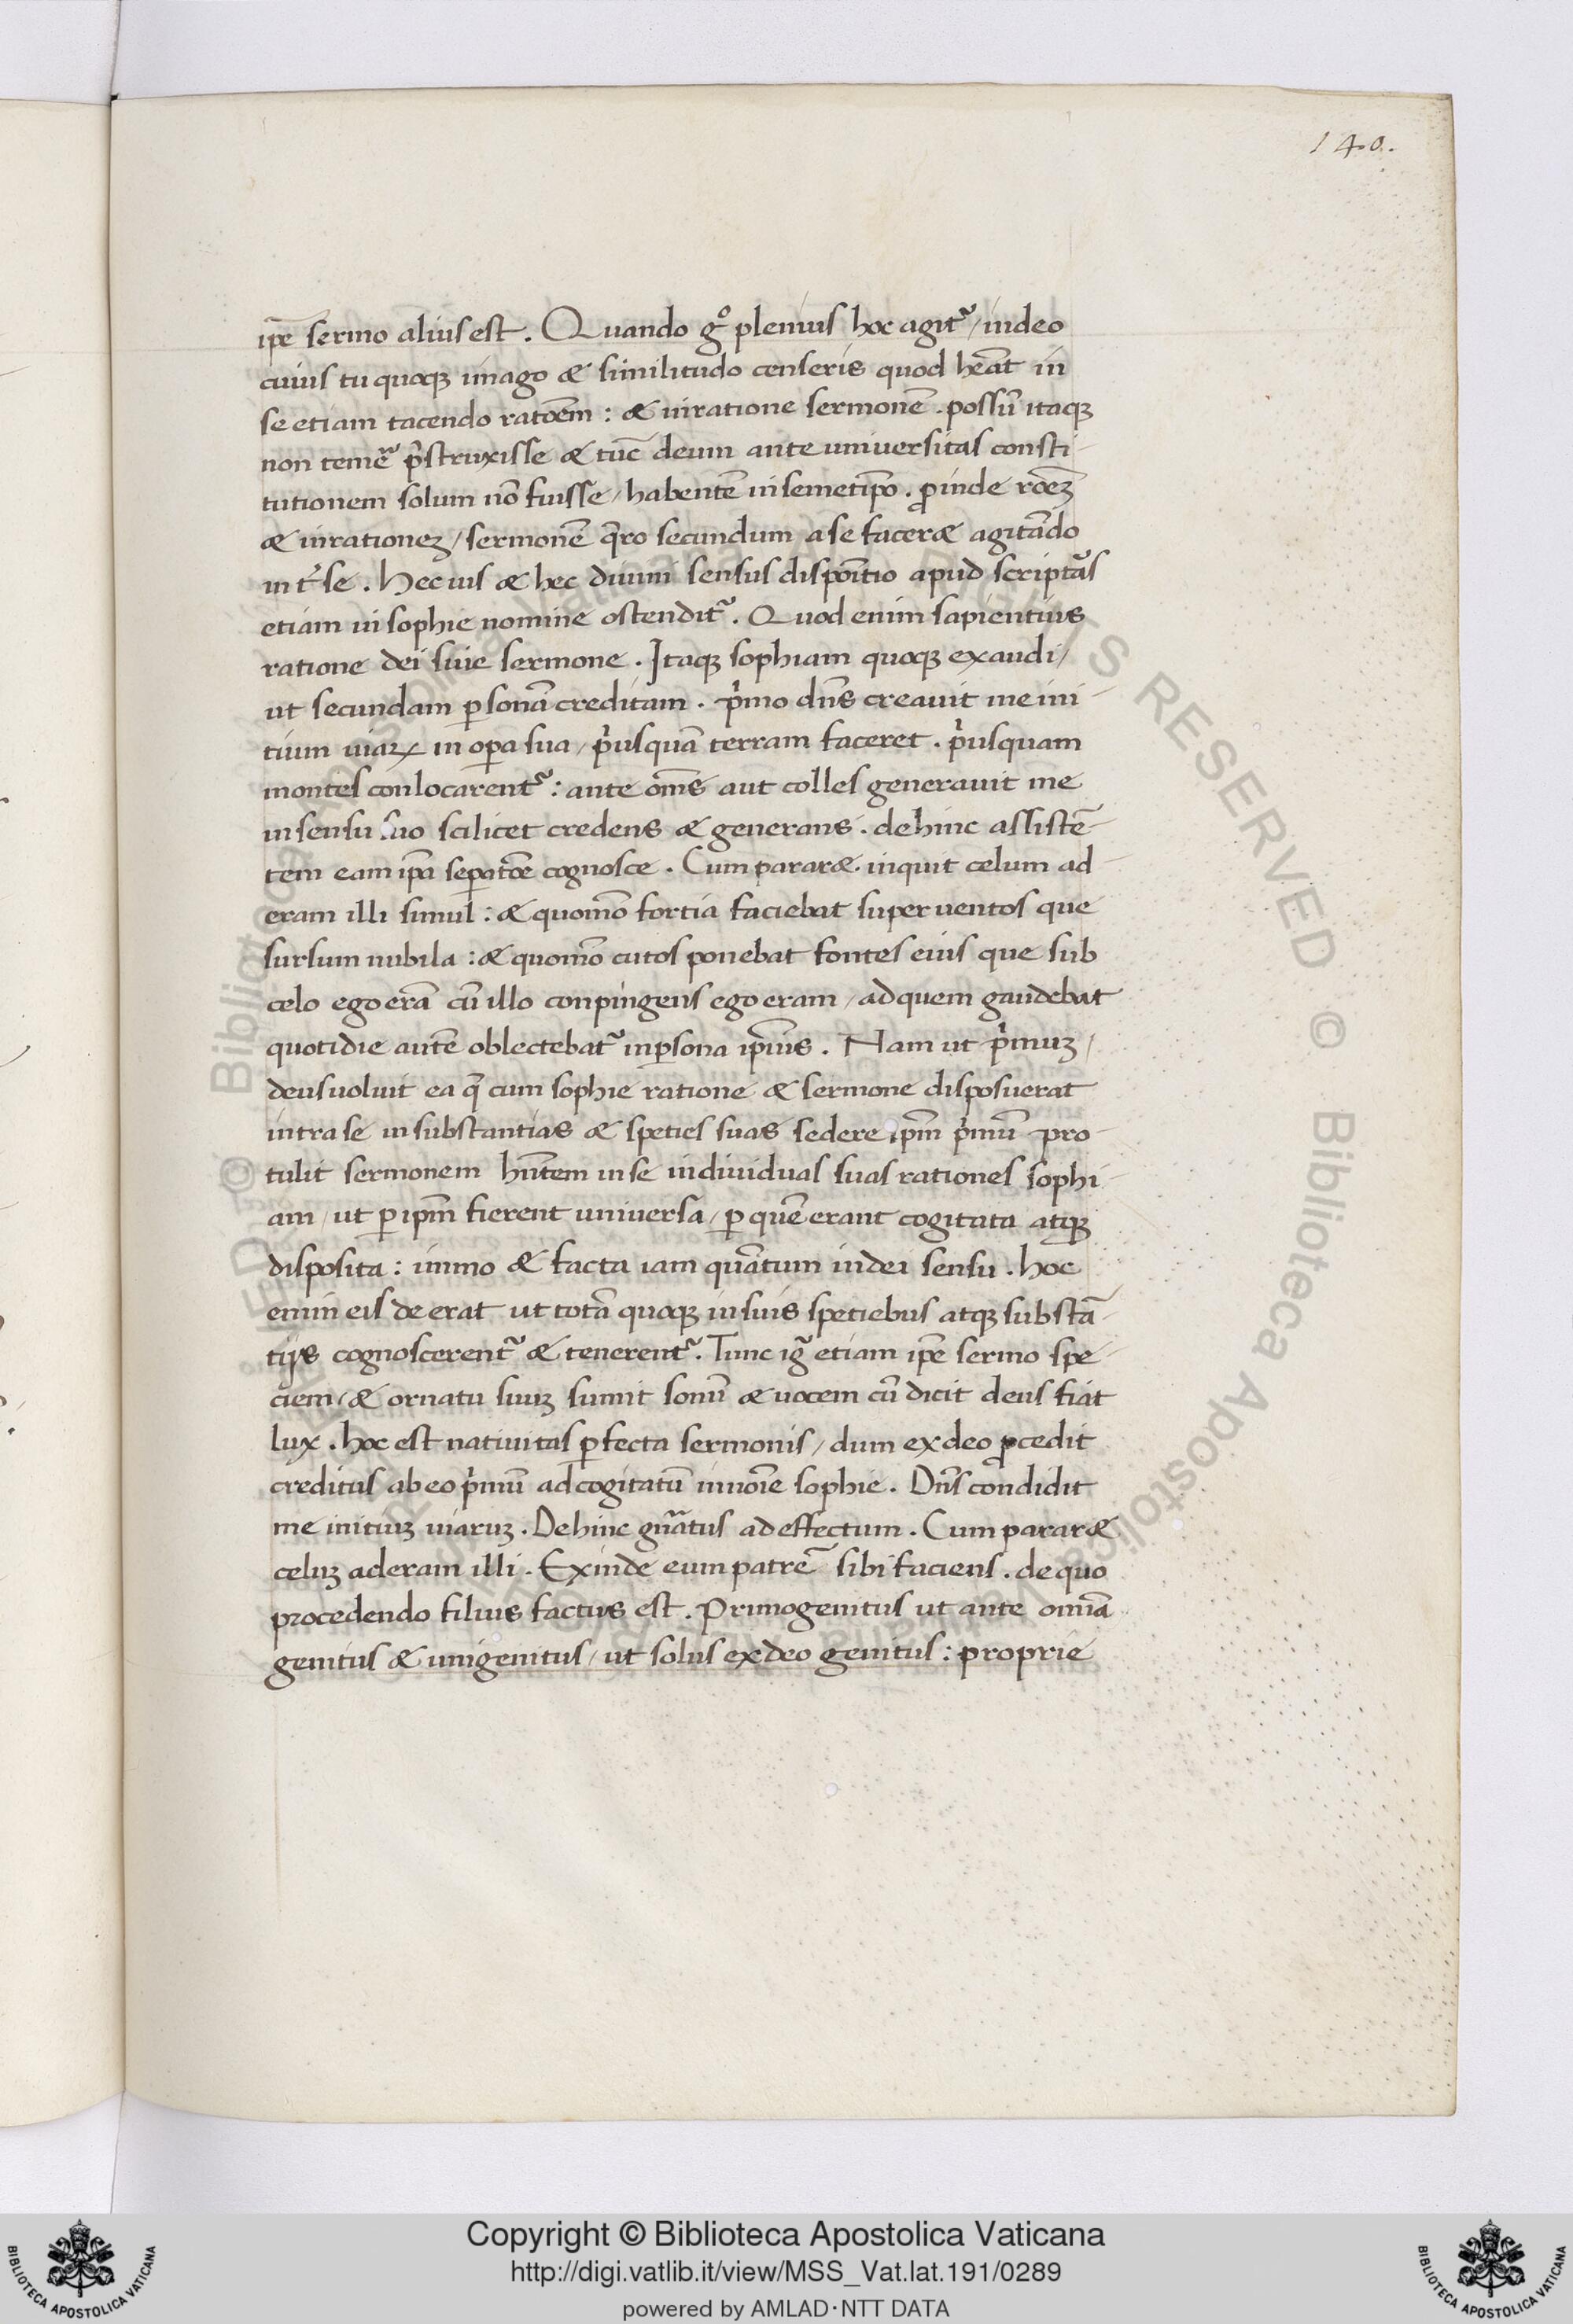 140.
ip̄e sermo alius est. Quando g° plenius hoc agit᷑ / in deo
cuius tu quoqꝫ imago & similitudo censeris quod hēat in
se etiam tacendo ratōem : & in ratione sermonē . possū itaqꝫ
non temē p̄struxisse & tūc deum ante universitas consti-
tutionem solum nō fuisse / habentē in semetip̄o . ꝓinde rōeꝫ
& in rationeꝫ / sermonē q̄ro secundum a se faceræ agitādo
int᷑ se . Hec uis & hec diuini sensus dispōitio apud scriptās
etiam in sophie nomine ostendit᷑ . Quod enim sapientius
ratione dei siue sermone . Itaqꝫ sophiam quoqꝫ exaudi /
ut secundam ꝑsonā creditam . pⁱmo dn̄s creauit me ini-
tium uiaꝝ in oꝑa sua / pⁱusquā terram faceret . pⁱusquam
montes conlocarent᷑ : ante om̄s aut colles generauit me
in sensu suo scilicet credens & generans . dehinc assistē-
tem eam ip̄a seꝑatōe cognosce . Cum pararæ inquit celum ad-
eram illi simul : & quomō fortia faciebat super uentos que
sursum nubila : & quomō cutos ponebat fontes eius que sub
celo ego erā cū illo conpingens ego eram / ad quem gaudebat
quotidie autē oblectebat᷑ in ꝑsona ip̄ius . Nam ut pⁱmuꝫ /
deus uoluit ea q̄ cum sophie ratione & sermone disposuerat
intra se in substantias & speties suas sedere ip̄m pⁱmū pro-
tulit sermonem hn̄tem in se individuas suas rationes sophi-
am / ut ꝑ ip̄m fierent universa / ꝑ quē erant cogitata atqꝫ
disposita : immo & facta iam quātum in dei sensu . hoc
enim eis de erat ut totā quoqꝫ in suis spetiebus atqꝫ substā-
tijs cognoscerent᷑ & tenerent᷑ . Tunc ig᷑ etiam ip̄e sermo spe-
ciem / & ornatu suuꝫ sumit sonū & uocem cū dicit deus fiat
lux . hoc est nativitas ꝑfecta sermonis / dum ex deo ꝓcedit
creditus ab eo pⁱmū ad cogitatū in nōie sophie . Dn̄s condidit
me initiuꝫ uiaruꝫ . Dehinc gn̄atus ad effectum . Cum pararæ
celuꝫ aderam illi . Exinde eum patrē sibi faciens . de quo
procedendo filius factus est . Primogenitus ut ante omiā
genitus & unigenitus / ut solus ex deo genitus : proprie
© Biblioteca Apostolica Vaticana
ALL RIGHTS RESERVED
Copyright © Biblioteca Apostolica Vaticana
http://digi.vatlib.it/view/MSS_Vat.lat.191/0289
powered by AMLAD·NTT DATA
BIBLIOTECA APOSTOLICA VATICANA
BIBLIOTECA APOSTOLICA VATICANA